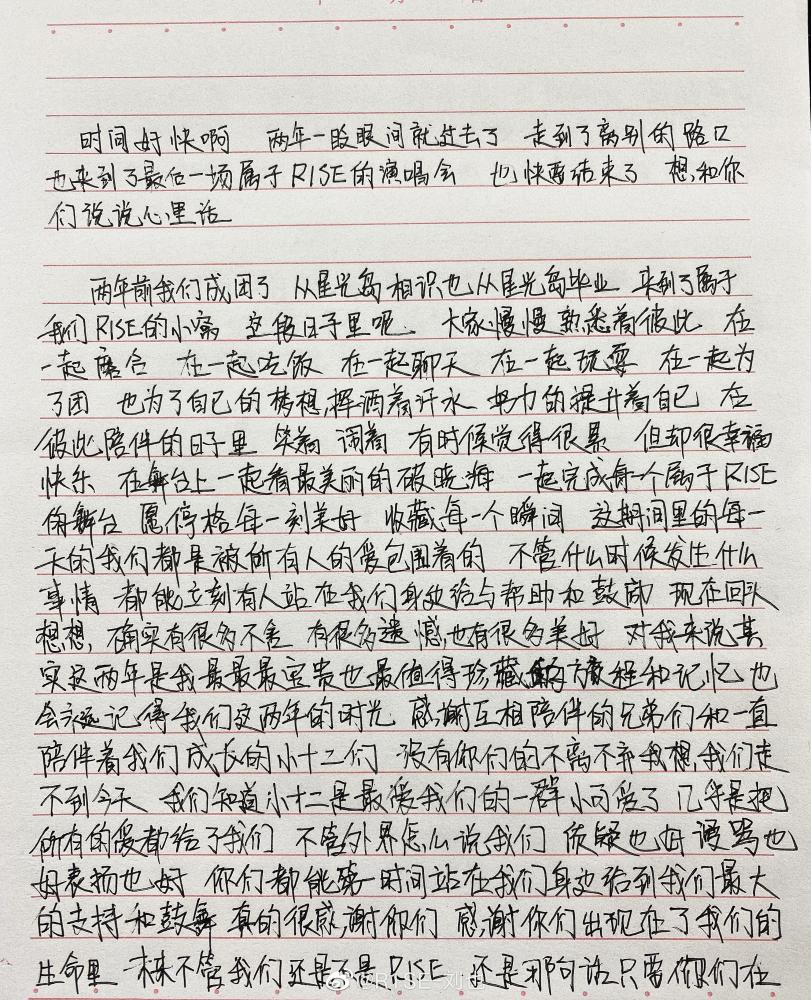 时间好快啊 两年一眨眼间就过去了 走到了离别的路口
也来到了最后一场属于RISE的演唱会 也快要结束了 想和你
们说说心里话
两年前我们成团了 从星光岛相识也从星光岛毕业 来到了属于
我们RISE的小窝 这段日子里呢 大家慢慢熟悉着彼此 在
一起磨合 在一起吃饭 在一起聊天 在一起玩耍 在一起为
了团 也为了自己的梦想,挥洒着汗水 努力的提升着自己 在
彼此陪伴的日子里 笑着 闹着 有时候觉得很累 但却很幸福
快乐 在舞台上一起看最美丽的破晓海 一起完成每一个属于RISE
的舞台 愿停格每一刻美好 收藏每一个瞬间 这期间里的每一
天的我们都是被所有人的爱包围着的 不管什么时候发生什么
事情 都能立刻有人站在我们身边给与帮助和鼓励 现在回头
想想, 确实有很多不舍 有很多遗憾,也有很多美好 对我来说其
实这两年是我最最最宝贵也最值得珍藏的旅程和记忆 也
会永远记得我们这两年的时光 感谢互相陪伴的兄弟们和一直
陪伴着我们成长的小十二们 没有你们的不离不弃我想,我们走
不到今天 我们知道小十二是最爱我们的一群小可爱了 几乎是把
所有的爱都给了我们 不管外界怎么说我们 质疑也好 谩骂也
好表扬也好 你们都能第一时间站在我们身边给到我们最大
的支持和鼓舞 真的很感谢你们 感谢你们出现在了我们的
生命里 未来不管我们还是不是RISE 还是那句话只要你们在